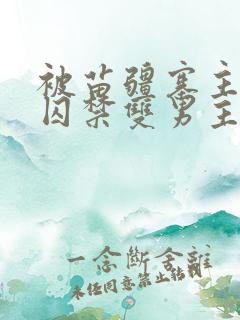 被苗疆寨主
囚禁雙男主
一念斷舍離
未经同意禁止转载